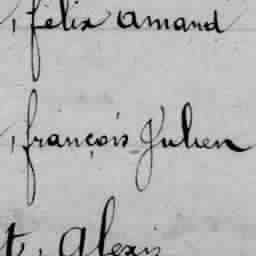 , félix amand
, françois Julien
t, Alexis